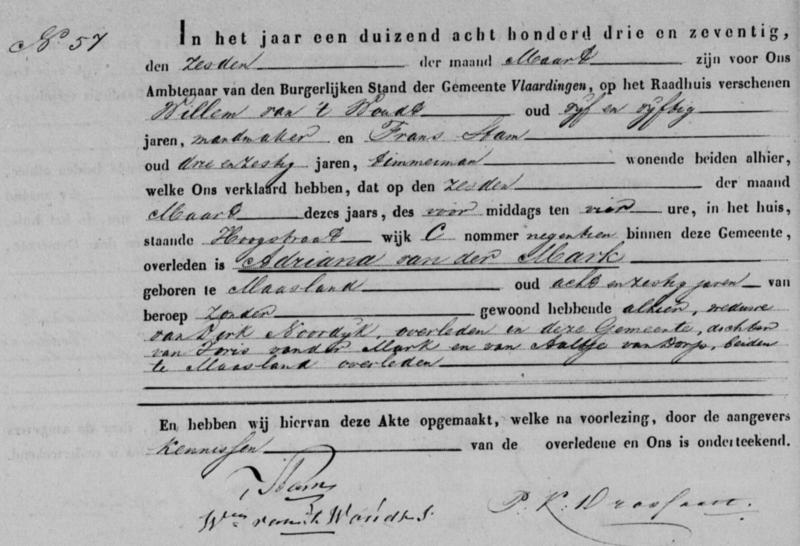 No. 57
In het jaar een duizend acht honderd drie en zeventig,
den zesden der maand Maart zijn voor Ons
Ambtenaar van den Burgerlijken Stand der Gemeente Vlaardingen, op het Raadhuis verschenen
Willem van 't Woudt oud vyf en vyftig
jaren, mandmaker en Frans Stam
oud drie en zestig jaren, timmerman wonende beiden alhier,
welke Ons verklaard hebben, dat op den zesden der maand
Maart dezes jaars, des voor middags ten vier ure, in het huis,
staande Hoogstraat wijk C nommer negentien binnen deze Gemeente,
overleden is Adriana van der Mark
geboren te Maasland oud acht en zestig jaren van
beroep zonder gewoond hebbende alhier, weduwe
van Dirk Noordyk, overleden in deze Gemeente, dochter
van Joris van der Mark en van Aaltje van Dorp, beiden
te Maasland overleden
En hebben wij hiervan deze Akte opgemaakt, welke na voorlezing, door de aangevers
kennissen van de overledene en Ons is onderteekend.
F Stam
Wm van 't Woudt
P. K. Drossaart.